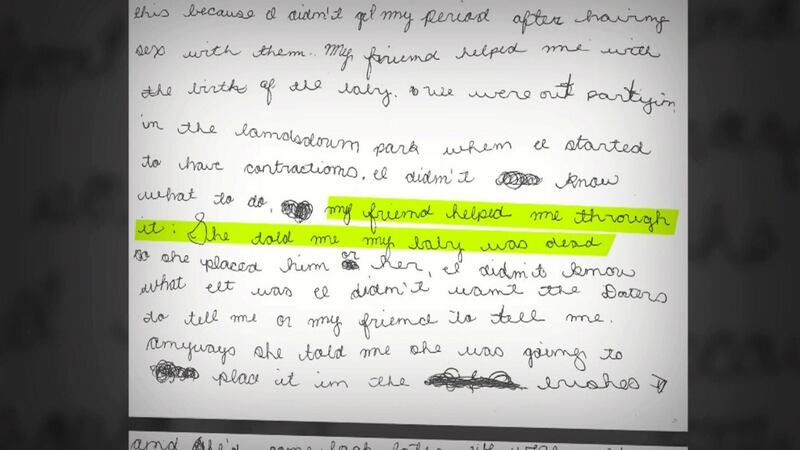 this because I didn't get my period after having
sex with them. My friend helped me with
the birth of the baby. we were out partying
in the lamdsdown park when I started
to have contractions. I didn't know
what to do. my friend helped me through
it. She told me my baby was dead
so she placed him or her, I didn't know
what it was I didn't want the Doters
to tell me or my friend to tell me.
Anyways she told me she was going to
place it in the bushes
and